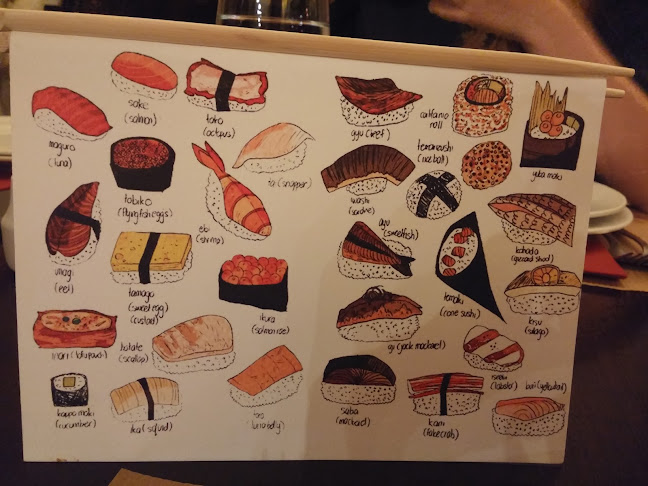 sake
(salmon)
tako
(octopus)
maguro
(tuna)
tai (snapper)
tobiko
(flying fish eggs)
ebi
(shrimp)
unagi
(eel)
tamago
(sweet egg
custard)
ikura
(salmon roe)
inari (tofu pouch)
hotate
(scallop)
kappa maki
(cucumber)
ika (squid)
gyu (beef)
california
roll
temarizushi
(rice ball)
yuba maki
iwashi
(sardine)
ayu
(sweetfish)
kohada
(gizzard shad)
temaki
(cone sushi)
kisu
(sillago)
aji (jack mackerel)
(lobster)
buri (yellowtail)
saba
(mackerel)
kani
(fake crab)